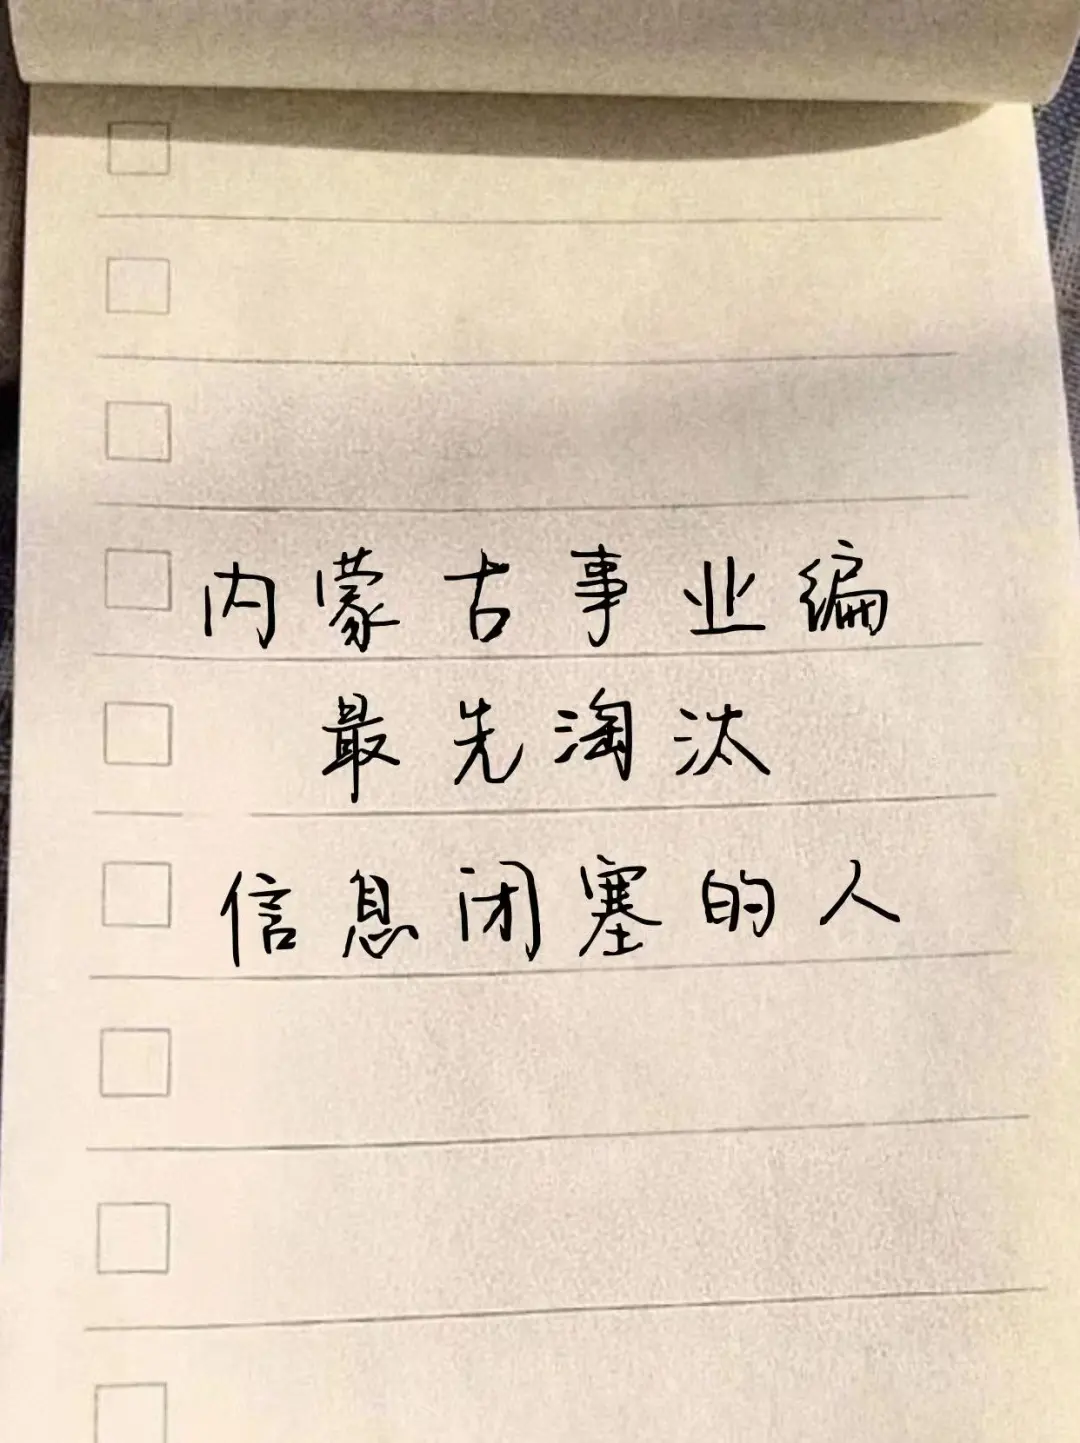 内蒙古事业编
最先淘汰
信息闭塞的人